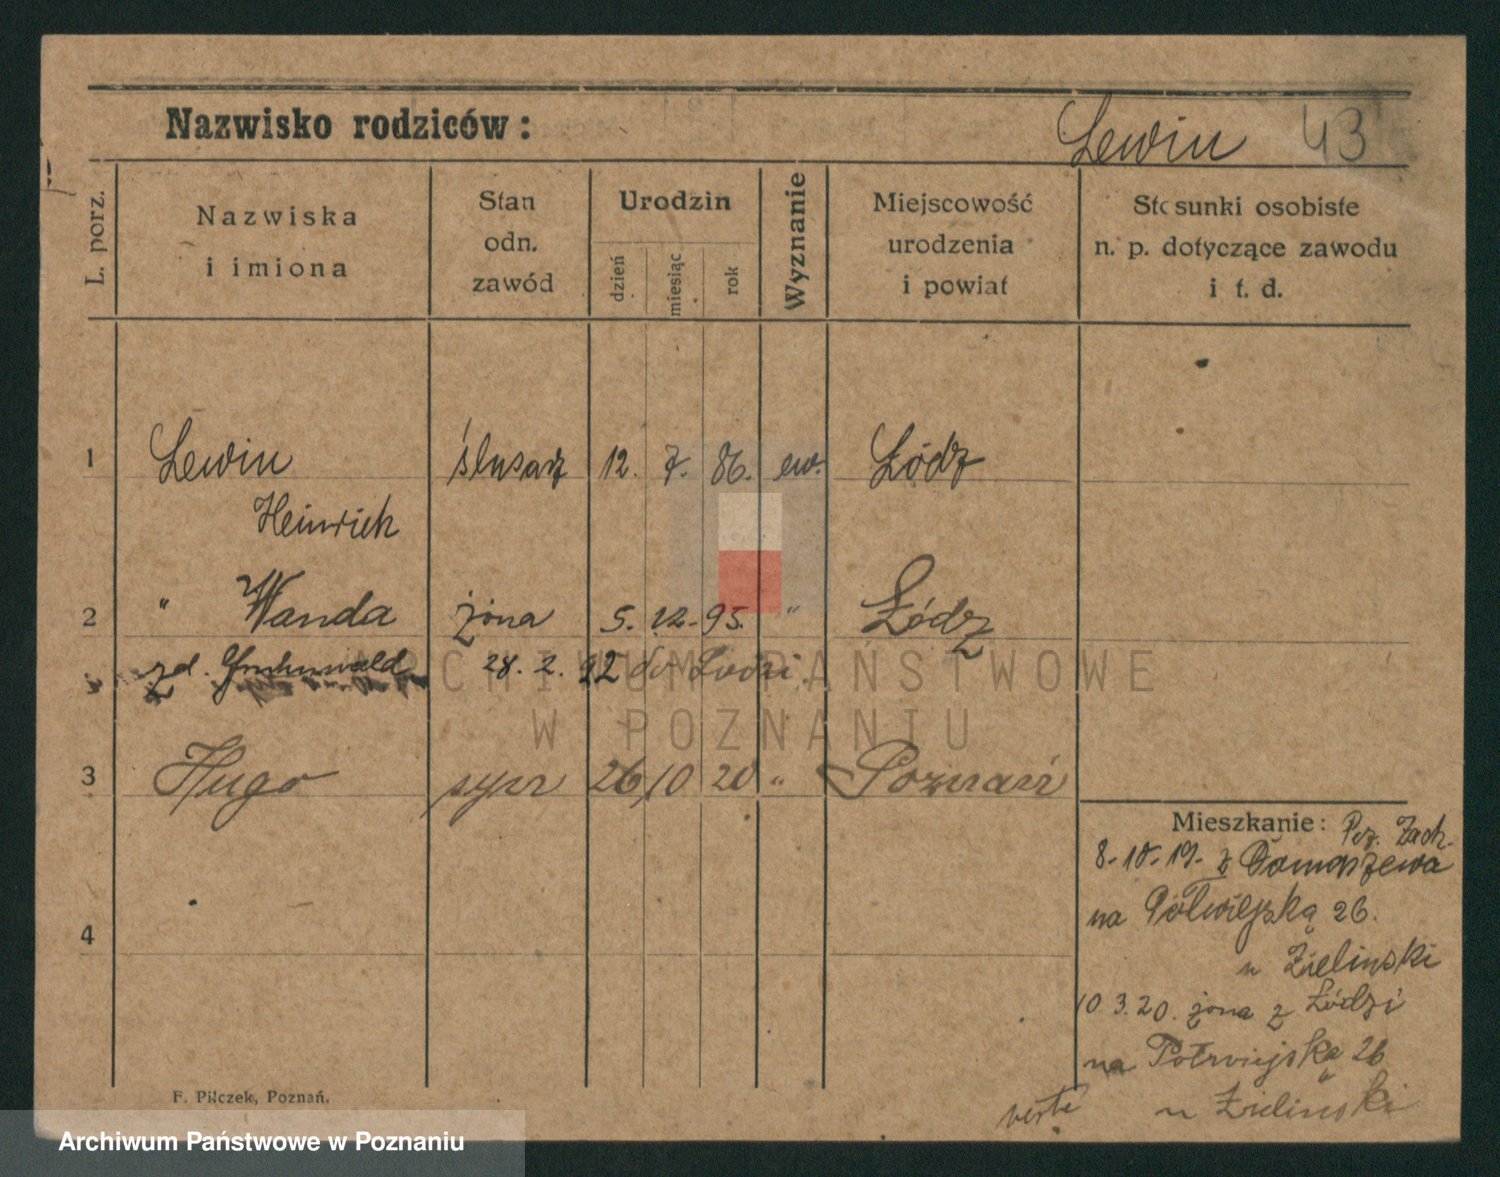 Nazwisko rodziców: Lewin 43
L. porz. Nazwiska i imiona Stan odn. zawód Urodzin dzień miesiąc rok Wyznanie Miejscowość urodzenia i powiat Stosunki osobiste n. p. dotyczące zawodu i t. d.
1 Lewin ślusarz 12. 7. 86. ew. Łódź
Heinrich
2 " Wanda żona 5. 12. 95. " Łódz
zd. 28. 2. 22 do Łodzi.
ARCHIWUM PAŃSTWOWE
W POZNANIU
3 Hugo syn 26 10 20 " Poznań
Mieszkanie:
8.10.19. z Tomaszewa
4
na Półwiejską 26.
u Zielinski
10.3.20. żona z Łódzi
na Półwiejską 26
u Zielinski
verte
F. Pilczek, Poznań.
Archiwum Państwowe w Poznaniu